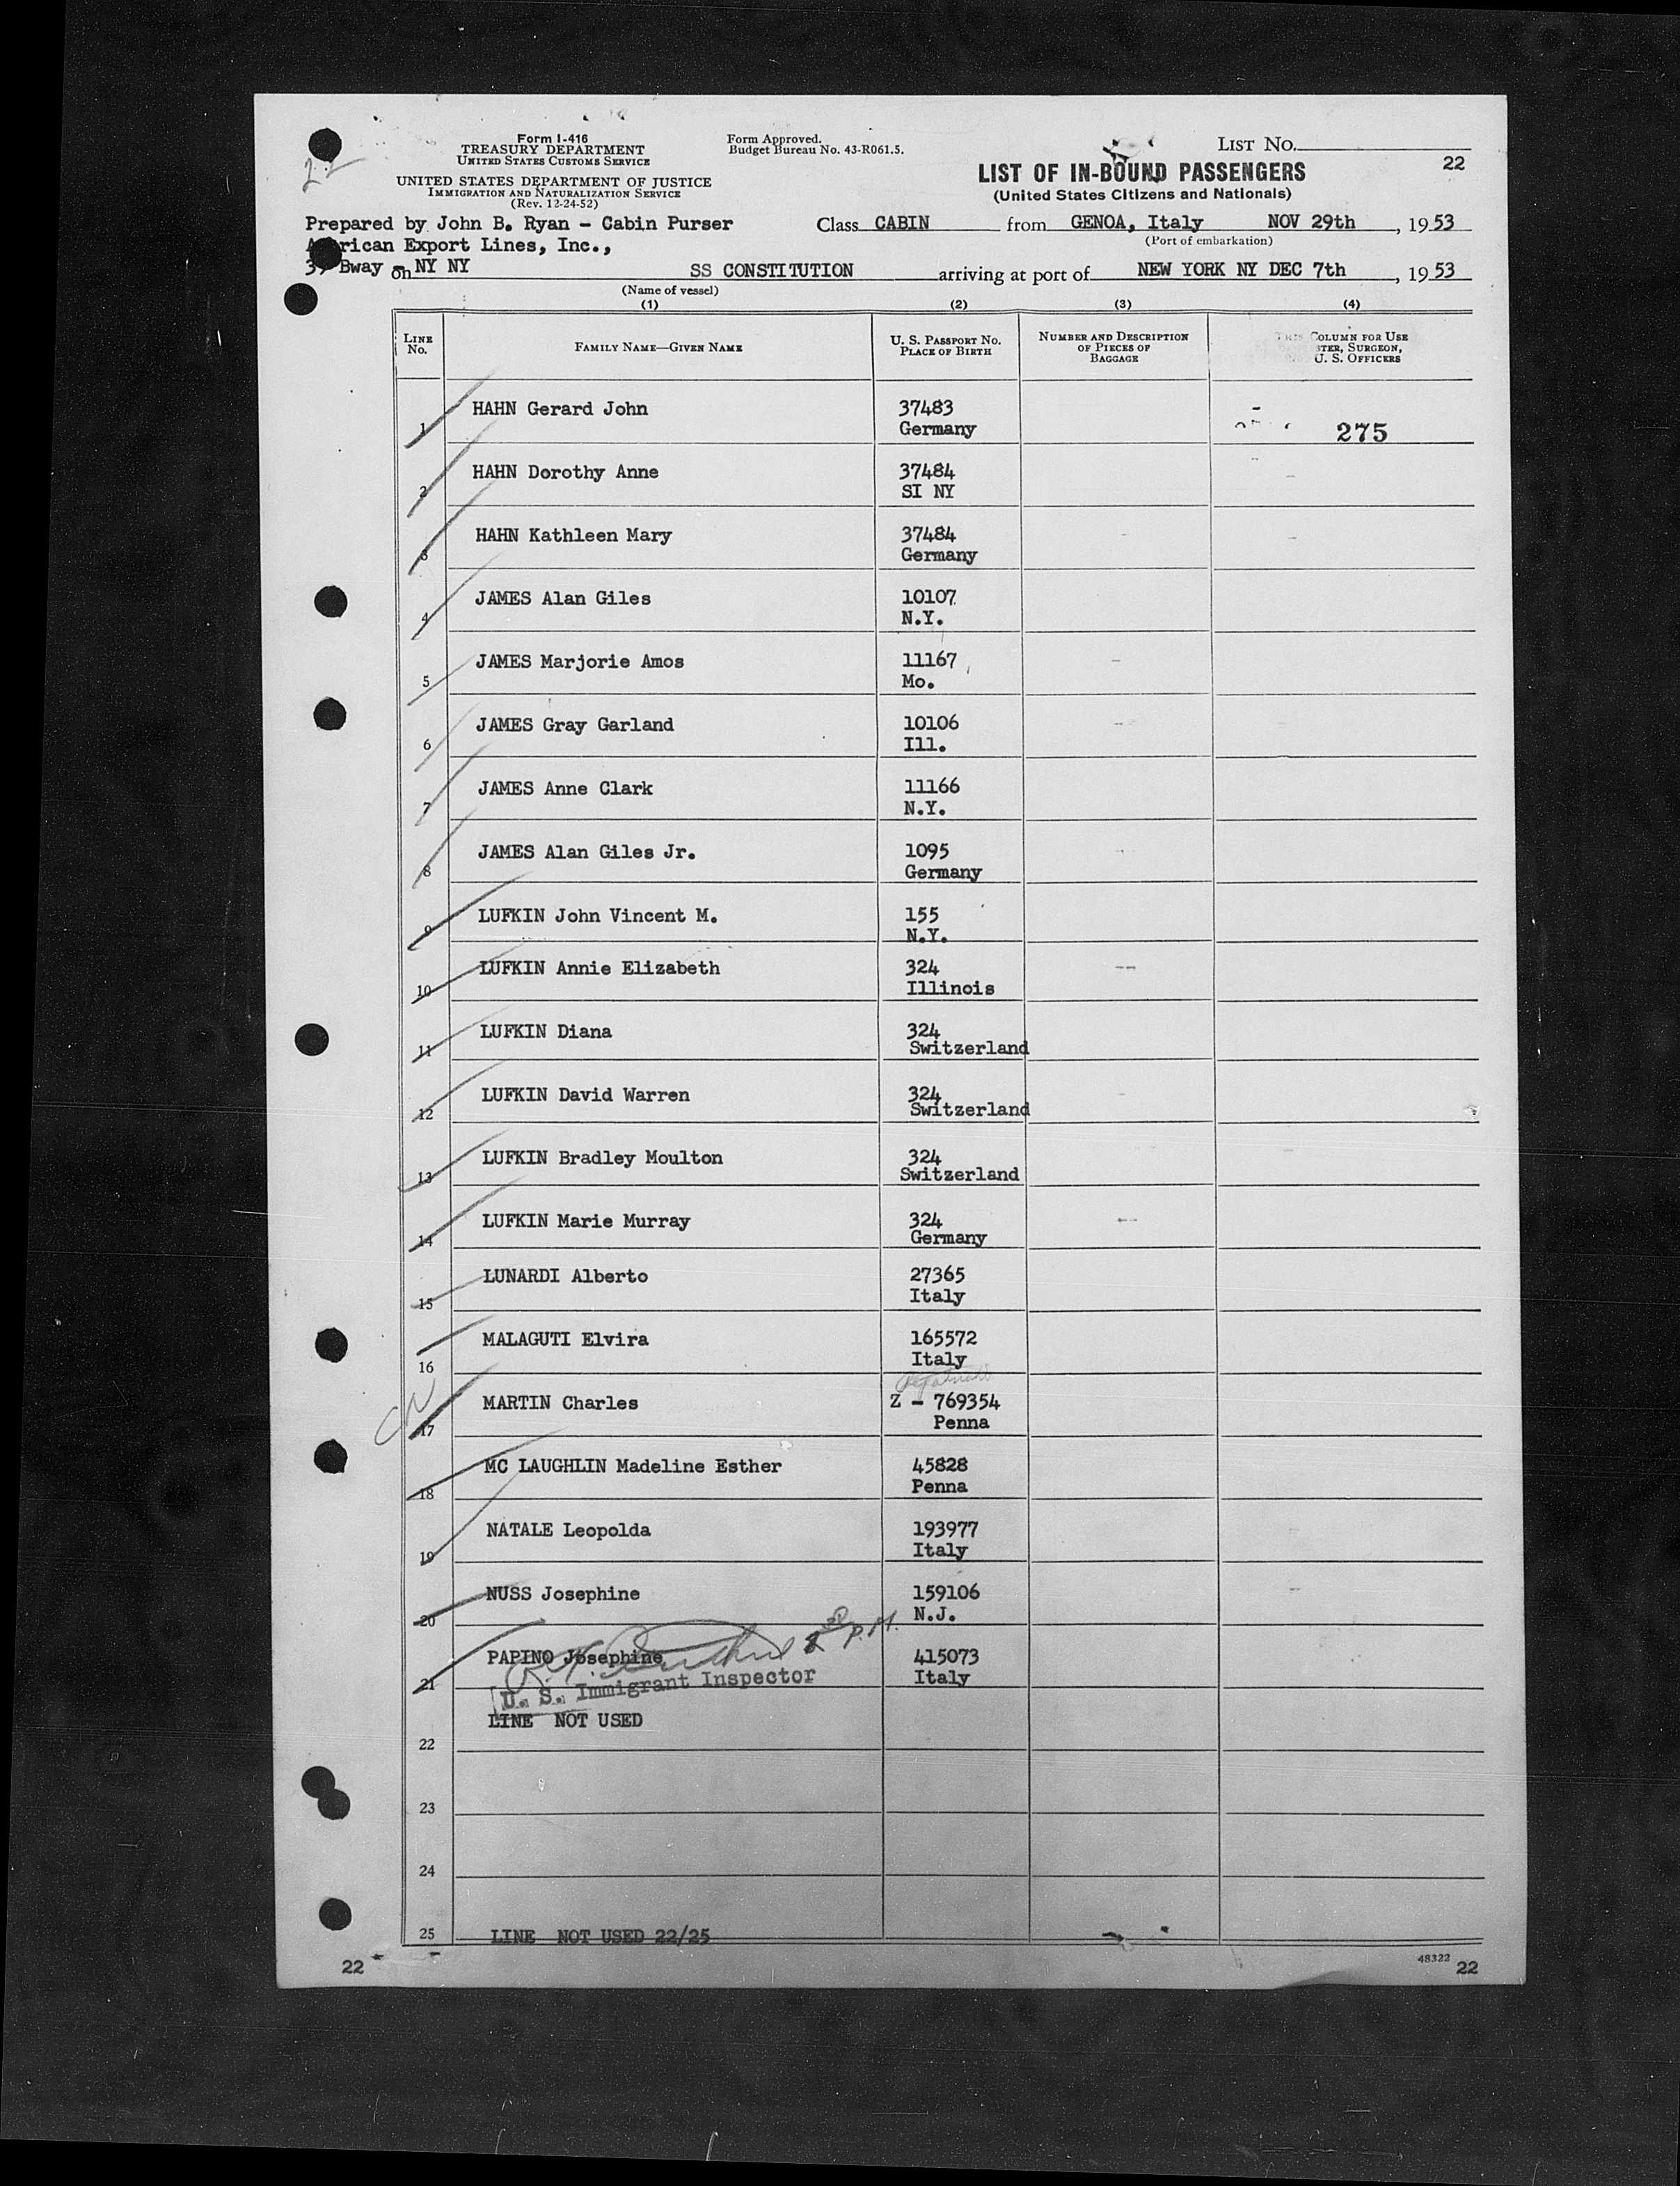 Form I-416
TREASURY DEPARTMENT
UNITED STATES CUSTOMS SERVICE
UNITED STATES DEPARTMENT OF JUSTICE
IMMIGRATION AND NATURALIZATION SERVICE
(Rev. 12-24-52)
Form Approved.
Budget Bureau No. 43-R061.5.
LIST NO.
22
LIST OF IN-BOUND PASSENGERS
(United States Citizens and Nationals)
22
Prepared by John B. Ryan - Cabin Purser
Class CABIN from GENOA, Italy NOV 29th, 1953
(Port of embarkation)
rican Export Lines, Inc.,
Bway - on NY NY SS CONSTITUTION arriving at port of NEW YORK NY DEC 7th, 1953
(Name of vessel)
(1) (2) (3) (4)
LINE No. FAMILY NAME—GIVEN NAME U. S. PASSPORT NO. PLACE OF BIRTH NUMBER AND DESCRIPTION OF PIECES OF BAGGAGE THIS COLUMN FOR USE TER, SURGEON, U. S. OFFICERS
1 HAHN Gerard John 37483
Germany 275
2 HAHN Dorothy Anne 37484
SI NY
3 HAHN Kathleen Mary 37484
Germany
4 JAMES Alan Giles 10107
N.Y.
5 JAMES Marjorie Amos 11167
Mo.
6 JAMES Gray Garland 10106
Ill.
7 JAMES Anne Clark 11166
N.Y.
8 JAMES Alan Giles Jr. 1095
Germany
9 LUFKIN John Vincent M. 155
N.Y.
10 LUFKIN Annie Elizabeth 324
Illinois
11 LUFKIN Diana 324
Switzerland
12 LUFKIN David Warren 324
Switzerland
13 LUFKIN Bradley Moulton 324
Switzerland
14 LUFKIN Marie Murray 324
Germany
15 LUNARDI Alberto 27365
Italy
16 MALAGUTI Elvira 165572
Italy
17 MARTIN Charles Z - 769354
Penna
18 MC LAUGHLIN Madeline Esther 45828
Penna
19 NATALE Leopolda 193977
Italy
20 NUSS Josephine 159106
N.J.
21 PAPINO Josephine 415073
Italy
U. S. Immigrant Inspector
LINE NOT USED
22
23
24
25 LINE NOT USED 22/25
22
48322
22